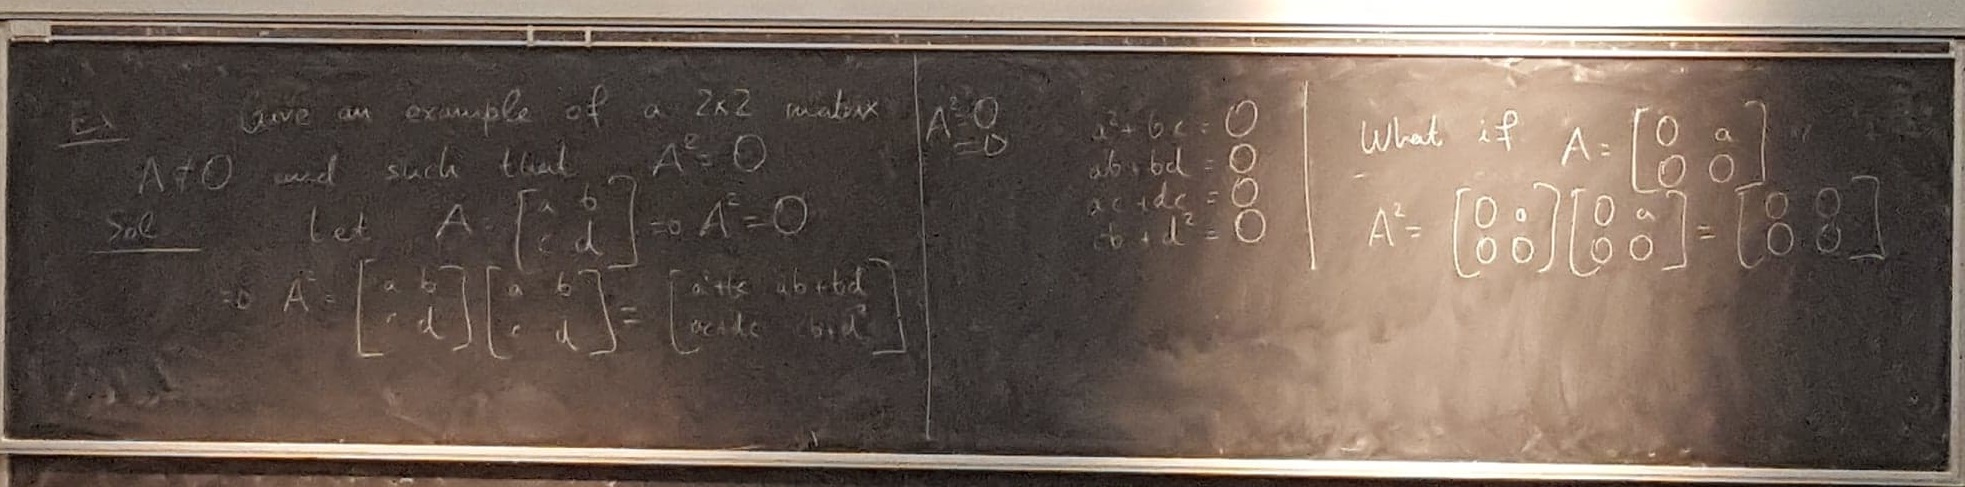 Ex Give an example of a 2x2 matrix
A ≠ 0 and such that A² = 0
Sol Let A = [a b; c d] => A² = 0
=> A² = [a b; c d] [a b; c d] = [a²+bc ab+bd; ac+dc cb+d²]
A² = 0
=>
a² + bc = 0
ab + bd = 0
ac + dc = 0
cb + d² = 0
What if A = [0 a; 0 0]
A² = [0 a; 0 0] [0 a; 0 0] = [0 0; 0 0]